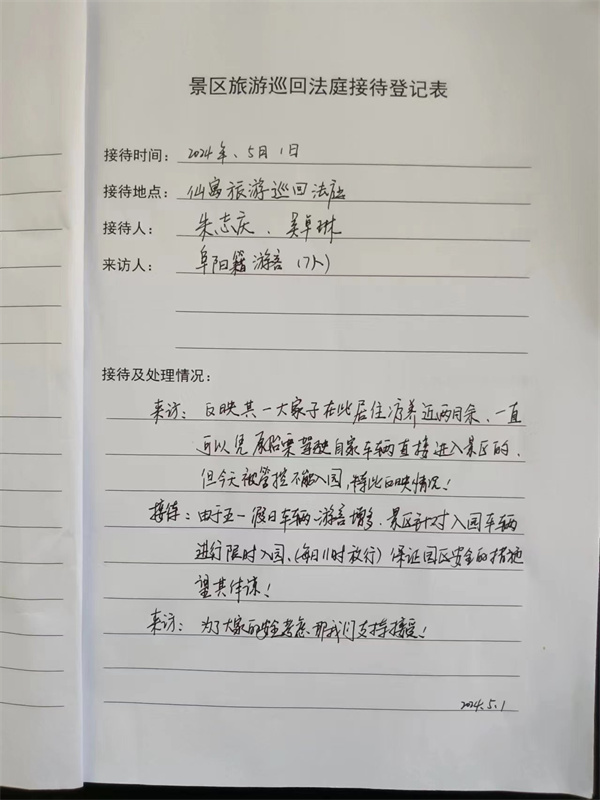 景区旅游巡回法庭接待登记表
接待时间：2024年、5月1日
接待地点：仙寓旅游巡回法庭
接待人：朱志庆、吴卓琳
来访人：阜阳籍游客（7人）
接待及处理情况：
来访：反映其一大家子在此居住疗养近两月余、一直
可以凭原船票驾驶自家车辆直接进入景区的，
但今天被管控不能入园，特此反映情况！
接待：由于五一假日车辆游客增多、景区针对入园车辆
进行限时入园、（每日11时放行）保证园区安全的措施
望其体谅！
来访：为了大家的安全考虑那我们支持接受！
2024.5.1